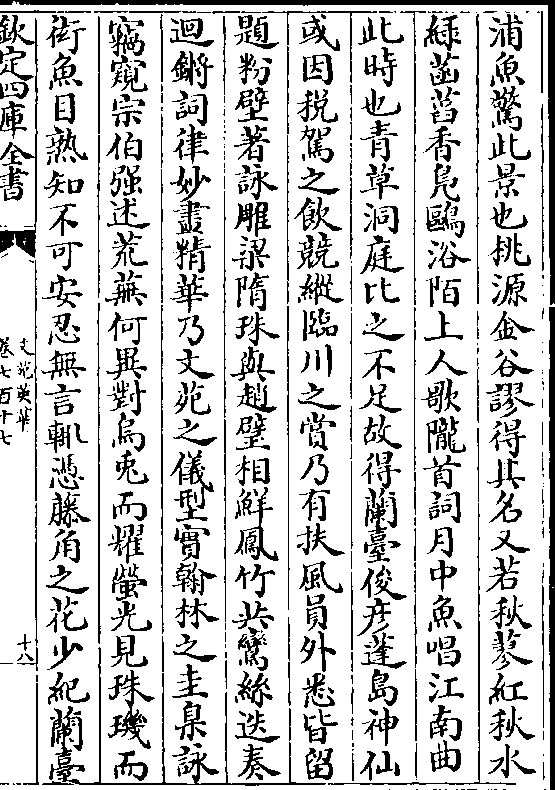 浦魚驚此景也桃源金谷謬得其名又若秋蓼紅秋水
緑菡萏香鳬鷗浴陌上人歌隴首詞月中魚唱江南曲
此時也青草洞庭比之不足故得蘭臺俊彦蓬島神仙
或因税駕之飲競縱臨川之賞乃有扶風員外悉皆留
題粉壁著詠雕梁隋珠與趙璧相鮮鳳竹共鸞絲迭奏
迴鏘詞律妙盡精華乃文苑之儀型實翰林之圭臬詠
竊窺宗伯强述荒蕪何異對烏兎而耀螢光見珠璣而
衒魚目熟知不可安忍無言輒憑藤角之花少紀蘭臺
欽定四庫全書
文苑英華
卷七百十七
十八